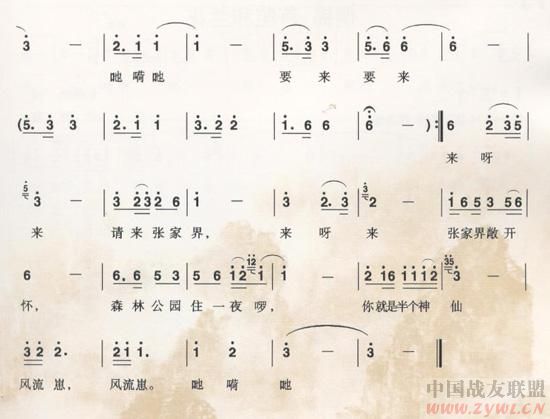 3 — | 2. 1 1 | 1 — | 5. 3 3 | 5. 6 6 | 6 — |
吔嗬吔 要来 要来
(5. 3 3 | 2. 1 1 | 3. 2 2 | 1. 6 6 | 6 — ) :‖ 6 2 3 5 |
来呀
5 3 — | 2 2 3 2 6 | 1 — | 3 2. 3 | 3 2 — | 1 6 5 3 5 |
来 请来张家界, 来呀来 张家界敞开
6 — | 6. 6 5 3 | 5 6 1 12 12 | 1 — | 2 16 1112 | 35 3 — |
怀, 森林公园住一夜啰, 你就是半个神仙
3 2 2. | 2. 1 1 1. | 1 2 | 3 — | 3 — ‖
风流崽, 风流崽。吔嗬吔
中国战友联盟
WWW.ZYWL.CN